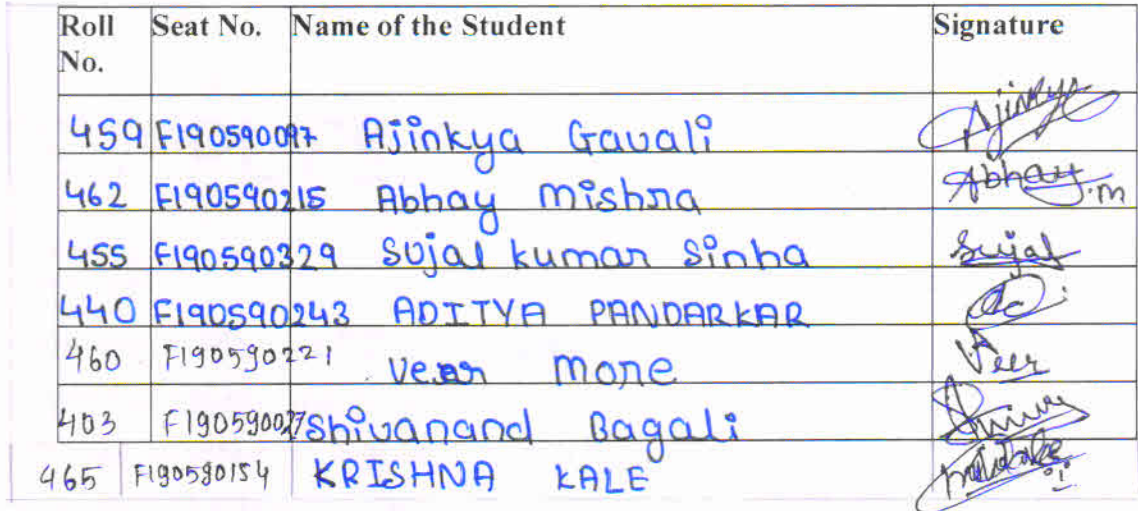 Roll No. Seat No. Name of the Student Signature
459 F190590097 Ajinkya Gavali Ajinkya
462 F190590215 Abhay Mishra Abhay.m
455 F190590329 Sujal kumar Sinha Sujal
440 F190590243 ADITYA PANDARKAR
460 F190590221 Veer More Veer
403 F190590027 Shivanand Bagali
465 F190590154 KRISHNA KALE